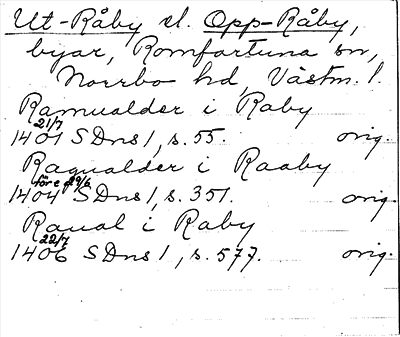 Ut-Råby el. Opp-Råby,
byar, Romfartuna sn,
Norrbo hd, Västm. l.
Ramualder i Raby
21/7
1401 SDns 1, s. 55. orig.
Ragualder i Raaby
före 29/6
1404 SDns 1, s. 351. orig.
Raual i Raby
22/7
1406 SDns 1, s. 577. orig.